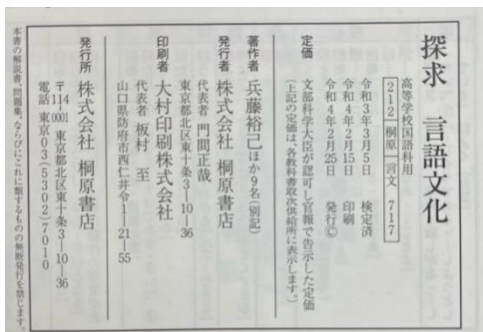 探求 言語文化
高等学校国語科用
212 桐原 言文 717
令和3年3月5日 検定済
令和4年2月15日 印刷
令和4年2月25日 発行©
定価 文部科学大臣が認可し官報で告示した定価
(上記の定価は、各教科書取次供給所に表示します。)
著作者 兵藤裕己ほか9名(別記)
発行者 株式会社 桐原書店
代表者 門間正哉
東京都北区東十条3-10-36
印刷者 大村印刷株式会社
代表者 板村 至
山口県防府市西仁井令1-21-55
発行所 株式会社 桐原書店
〒114-0001 東京都北区東十条3-10-36
電話 東京03(5302)7010
本書の解説書、問題集、ならびにこれに類するものの無断発行を禁じます。